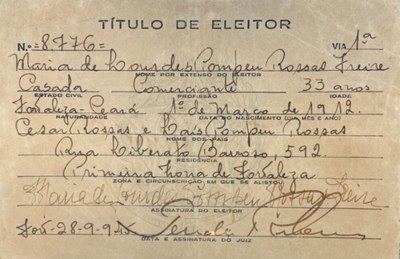 TÍTULO DE ELEITOR
N.º =8.776= VIA 1ª
Maria de Lourdes Pompeu Rossas Freire
NOME POR EXTENSO DO ELEITOR
Casada Comerciante 33 anos
ESTADO CIVIL PROFISSÃO IDADE
Fortaleza-Ceará 1º de Março de 1912.
NATURALIDADE DATA DO NASCIMENTO (DIA, MÊS E ANO)
Cesar Rossas e Laís Pompeu Rossas
NOME DOS PAIS
Rua Liberato Barroso, 592
RESIDÊNCIA
Primeira Zona de Fortaleza
ZONA E CIRCUNSCRIÇÃO EM QUE SE ALISTOU
Maria de Lourdes Pompeu Rossas Freire
ASSINATURA DO ELEITOR
For-28-9-945
DATA E ASSINATURA DO JUIZ